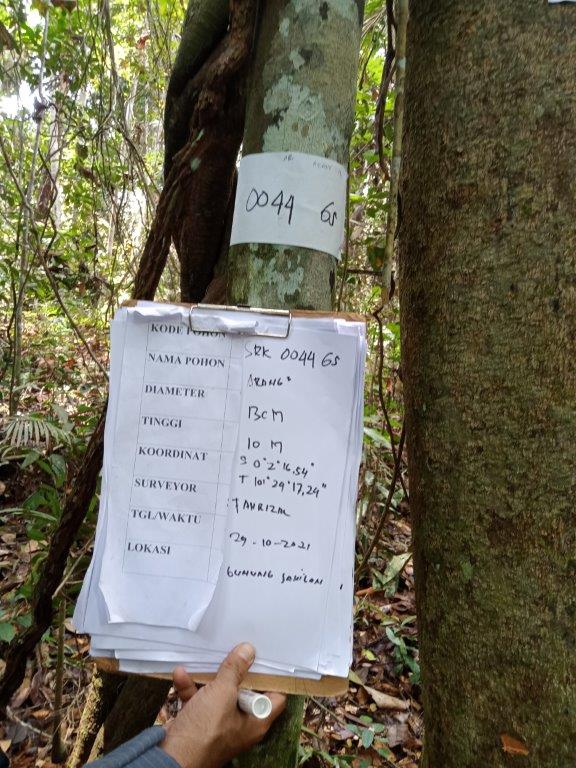 0044 GS
KODE POHON SRK 0044 GS
NAMA POHON ARANG"
DIAMETER 13CM
TINGGI 10 M
KOORDINAT S 0°2'16,54"
T 101°29'17,24"
SURVEYOR : TAHRIZAL
TGL/WAKTU 29-10-2021
LOKASI GUNUNG SAHILAN